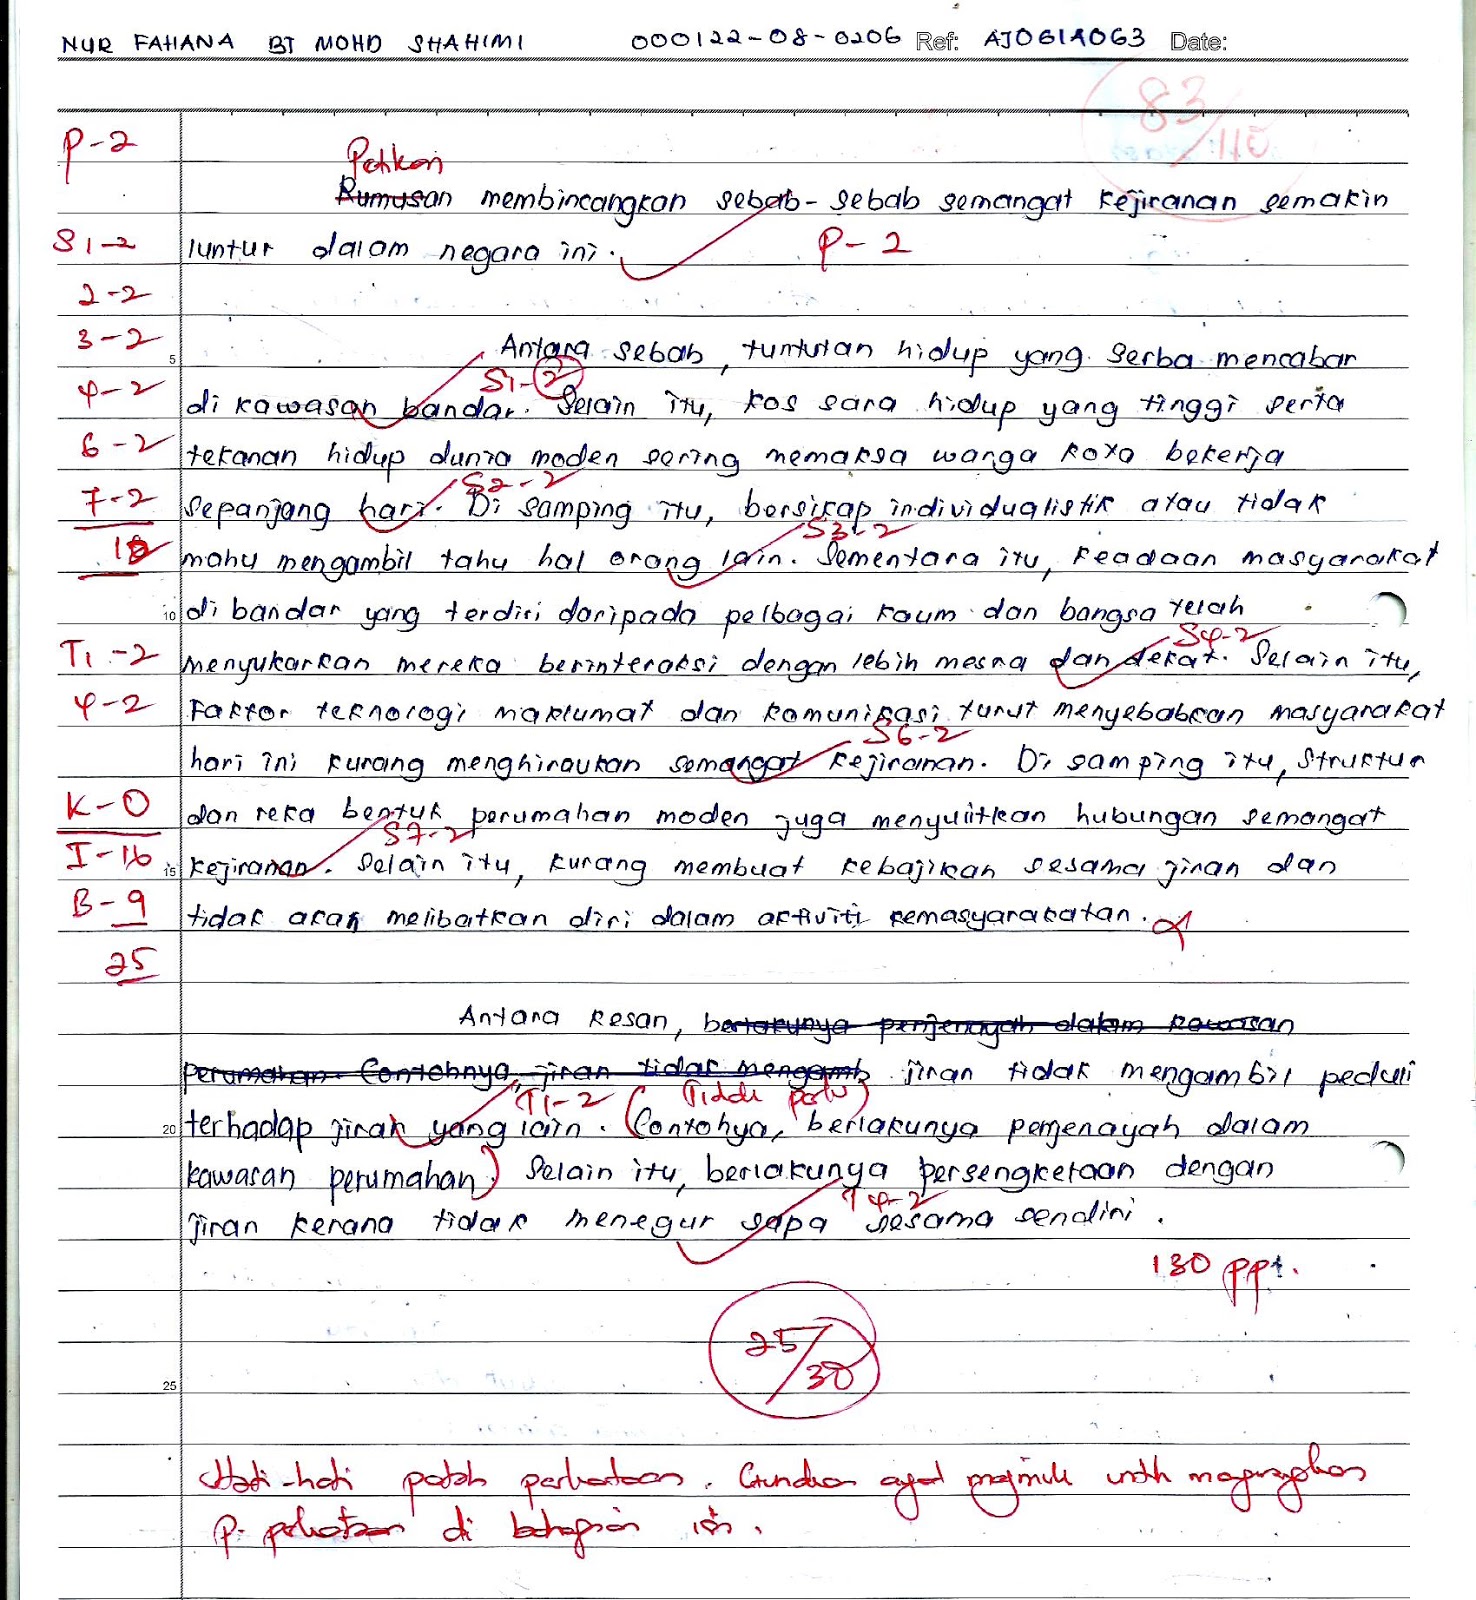 NUR FAHANA BT MOHD SHAHIMI 000122-08-0206 Ref: AJ061A063 Date:
83/110
P-2
Petikan
Rumusan membincangkan sebab-sebab semangat kejiranan semakin
S1-2 luntur dalam negara ini. P-2
2-2
3-2
5 Antara sebab, tuntutan hidup yang serba mencabar
S1-2
4-2 di kawasan bandar. Selain itu, kos sara hidup yang tinggi serta
6-2 tekanan hidup dunia moden sering memaksa warga kota bekerja
S2-2
7-2 sepanjang hari. Di samping itu, bersikap individualistik atau tidak
S3-2
18 mahu mengambil tahu hal orang lain. Sementara itu, keadaan masyarakat
10 di bandar yang terdiri daripada pelbagai kaum dan bangsa telah
S4-2
T1-2 menyukarkan mereka berinteraksi dengan lebih mesra dan dekat. Selain itu,
4-2 Faktor teknologi maklumat dan komunikasi turut menyebabkan masyarakat
S6-2
hari ini kurang menghiraukan semangat kejiranan. Di samping itu, struktur
K-0 dan reka bentuk perumahan moden juga menyulitkan hubungan semangat
S7-2
I-16 15 kejiranan. Selain itu, kurang membuat kebajikan sesama jiran dan
B-9 tidak akan melibatkan diri dalam aktiviti kemasyarakatan.
25
Antara kesan, berlakunya penjenayah dalam kawasan
perumahan Contohnya, jiran tidak mengamb jiran tidak mengambil peduli
T1-2 (Tidak perlu)
20 terhadap jiran yang lain. (Contohya, berlakunya penjenayah dalam
kawasan perumahan.) Selain itu, berlakunya persengketaan dengan
T4-2
jiran kerana tidak menegur sapa sesama sendiri.
130 ppt.
25/30
25
Hati-hati patah perkataan. Gunakan ayat majmuk untuk
P. perkataan di bahagian isi.